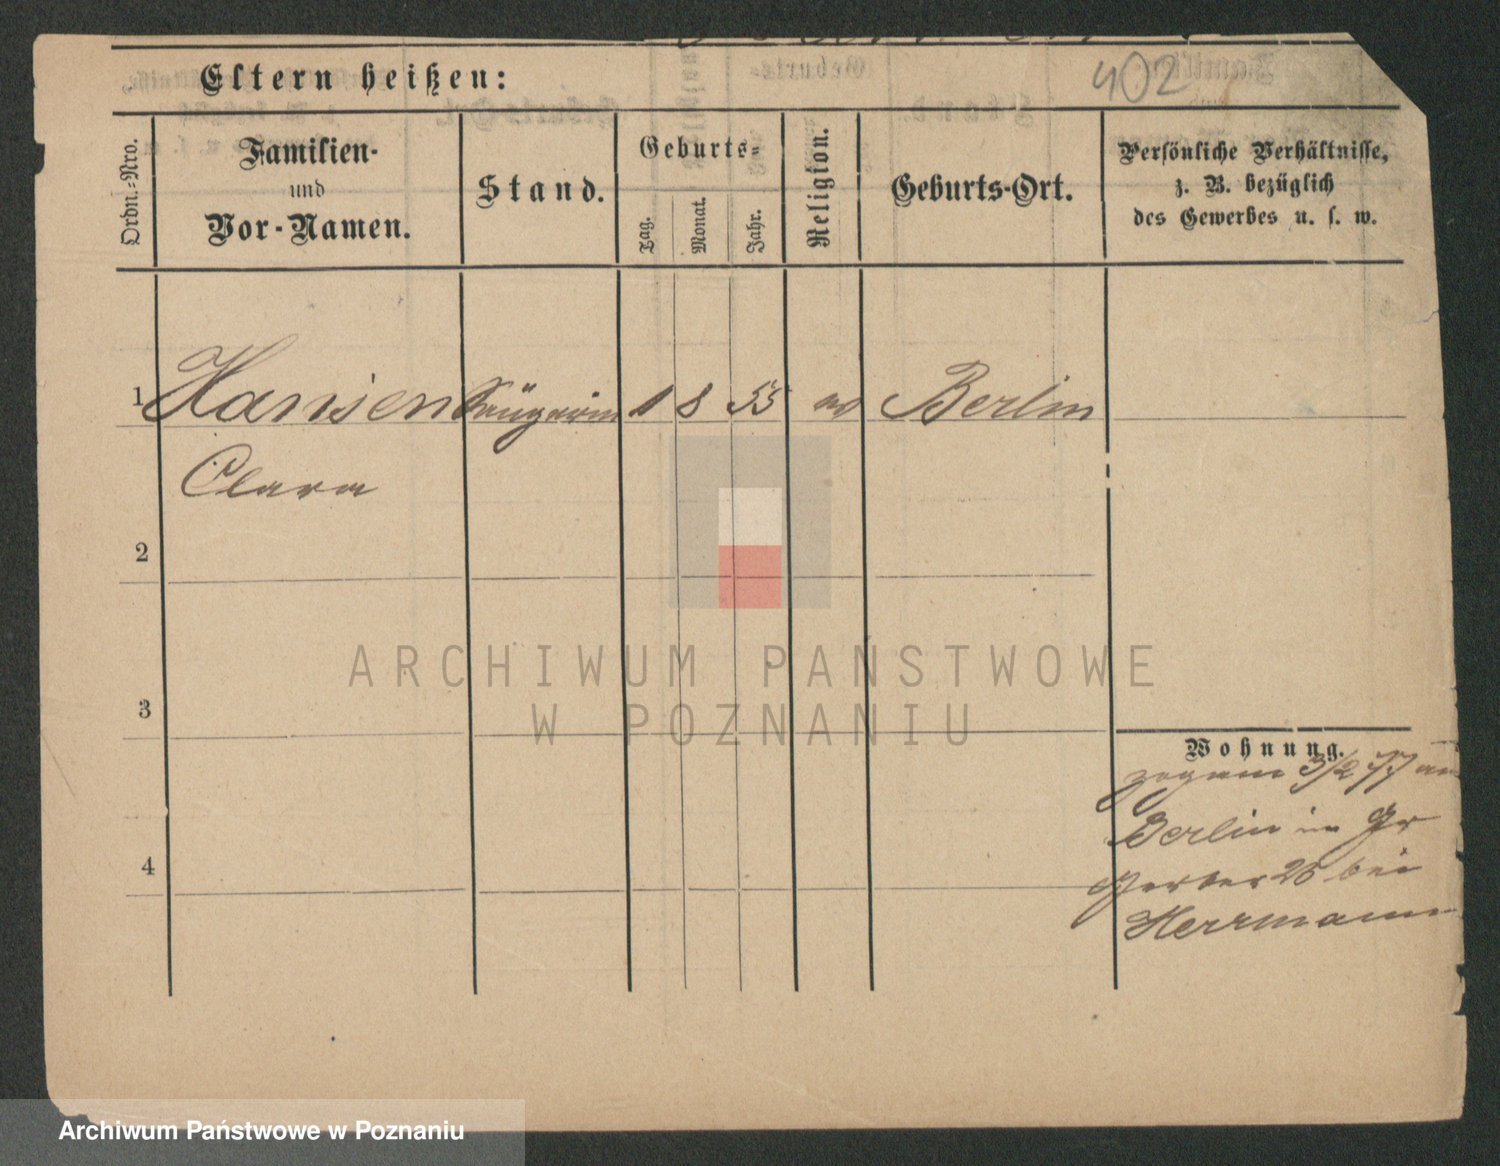 Eltern heißen:
402
Ordn.-Nro.
Familien-
und
Vor-Namen.
Stand.
Geburts-
Tag.
Monat.
Jahr.
Religion.
Geburts-Ort.
Persönliche Verhältnisse,
z. B. bezüglich
des Gewerbes u. s. w.
1 Hansen Sängerin 1 8 55 ev Berlin
Clara
2
3
4
Wohnung.
3/2 77
Berlin in Gr
Gerber 26 bei
Herrmann
ARCHIWUM PAŃSTWOWE
W POZNANIU
Archiwum Państwowe w Poznaniu